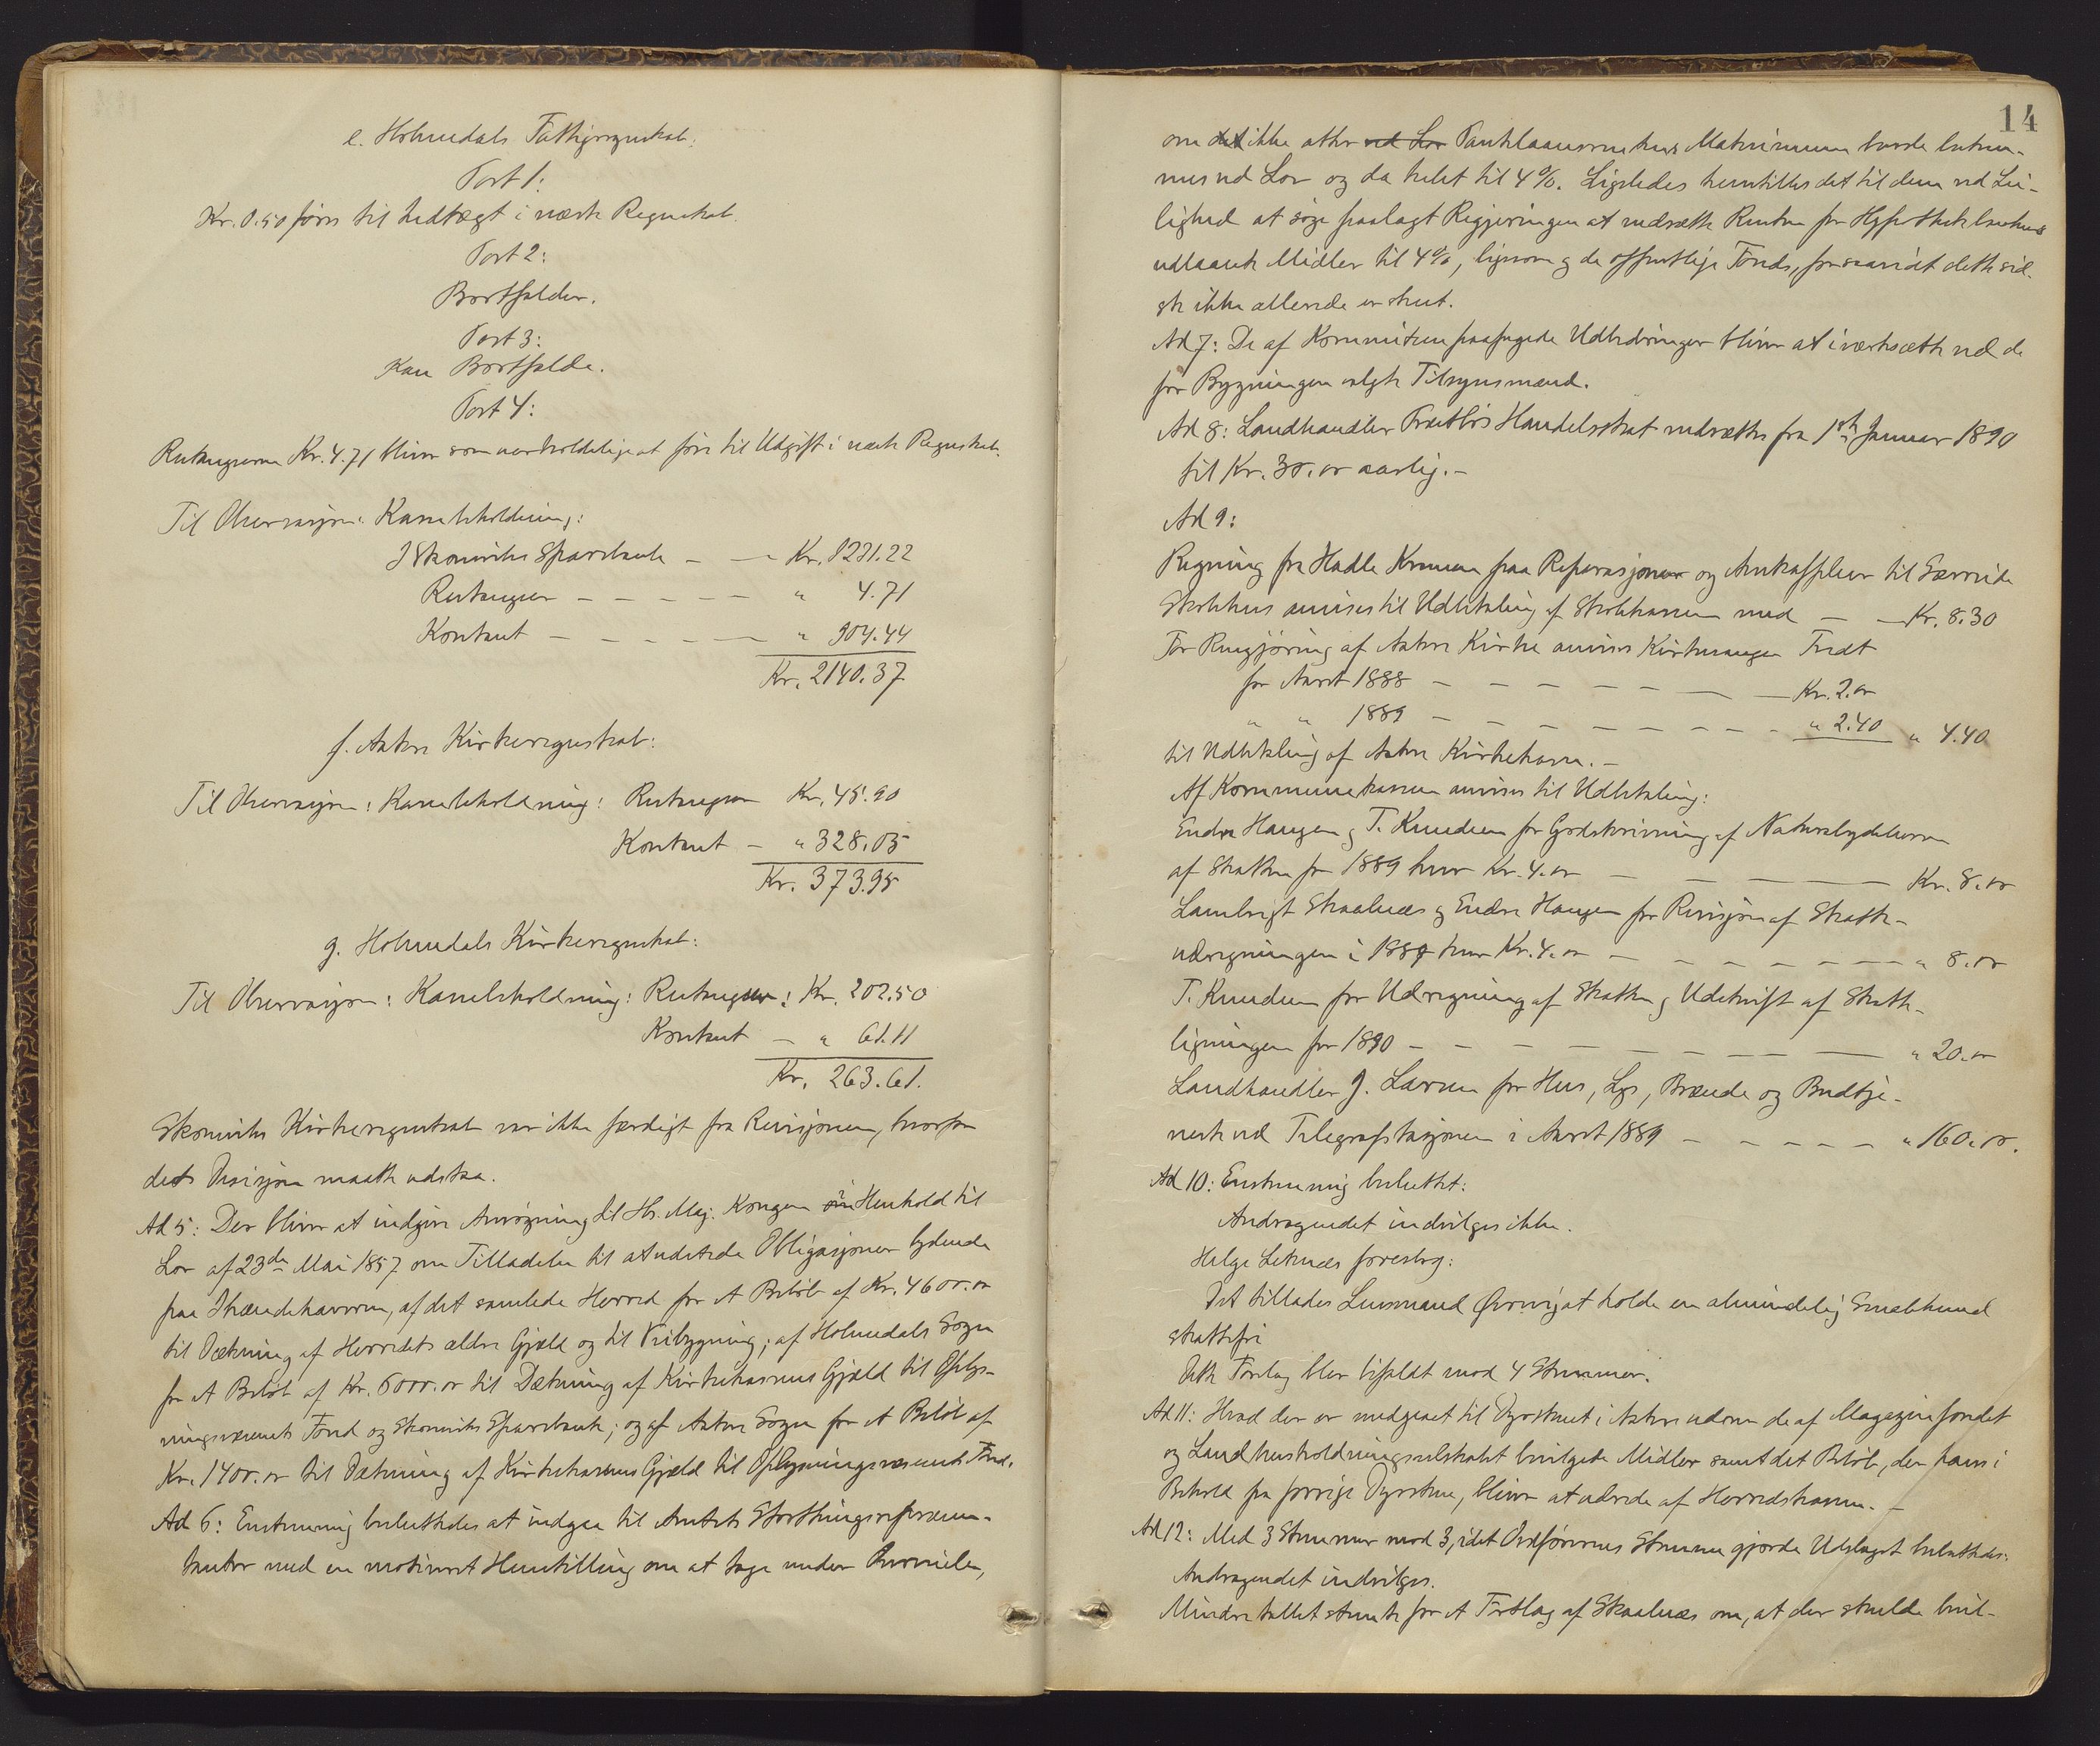 e. Holmedals Fattigregnskab:
Post 1:
Kr. 0.50 føres til Indtægt i næste Regnskab.
Post 2:
Bortfalder.
Post 3:
Kan Bortfalde.
Post 4:
Restancerne Kr. 4.71 bliver som uerholdelige at føre til Udgift i næste Regnskab.
Til Observasjon: Kassebeholdning:
I Skoneviks Sparebank — — Kr. 1231.22
Restancer — — — — — " 4.71
Kontant — — — — — " 904.44
Kr. 2140.37
f. Aakre Kirkeregnskab:
Til Observasjon: Kassebeholdning: Restancer Kr. 45.90
Kontant — " 328.05
Kr. 373.95
g. Holmedals Kirkeregnskab:
Til Observasjon: Kassebeholdning: Restancer: Kr. 202.50
Kontant — " 61.11
Kr. 263.61.
Skoneviks Kirkeregnskab var ikke færdigt fra Revisjonen, hvorfor
dets Decisjon maatte udstaa.
Ad 5: Der bliver at indgive Ansøgning til Hs. Maj. Kongen i Henhold til
Lov af 23de Mai 1857 om Tilladelse til at udstede Obligasjoner lydende
paa Ihændehaveren, af det samlede Herred for et Beløb af Kr. 4600.00
til Dækning af Herredets ældre Gjæld og til Veibygning; af Holmedals Sogn
for et Beløb af Kr. 6000.00 til Dækning af Kirkekassens Gjæld til Oplys-
ningsvæsenets Fond og Skoneviks Sparebank; og af Aakre Sogn for et Beløb af
Kr. 1400.00 til Dækning af Kirkekassens Gjæld til Oplysningsvæsenets Fond.
Ad 6: Enstemmig besluttedes at indgaa til Amtets Storthingsrepræsen-
tanter med en motiveret Henstilling om at tage under Overveielse,
14
om det ikke atter ved Lov Panklaanernes Maksimum burde bestem-
mes ved Lov og da helst til 4 %. Ligeledes henstilles det til dem ved Lei-
lighed at søge paalagt Regjeringen at nedsætte Renten for Hypothekbankens
udlaante Midler til 4 %, ligesom og de offentlige Fonds, forsaavidt dette sid-
ste ikke allerede er skeet.
Ad 7: De af Kommiteen paapegede Udbedringer bliver at iværksætte ved de
for Bygningen valgte Tilsynsmænd.
Ad 8: Landhandler Handelsskat nedsættes fra 1ste Januar 1890
til Kr. 30.00 aarlig. —
Ad 9:
Regning fra Hadle paa Reparasjoner og Anskaffelser til
Skolehus anvises til Udbetaling af Skolekassen med — — Kr. 8.30
For Rengjøring af Aakre Kirke anvises Kirkesanger Tvedt
for Aaret 1888 — — — — — — — Kr. 2.00
" " 1889 — — — — — — — — " 2.40 " 4.40
til Udbetaling af Aakre Kirkekasse. —
Af Kommunekassen anvises til Udbetaling:
Endre Haugen og T. Knudsen for Godskrivning af Naturalydelserne
af Skatten for 1889 hver Kr. 4.00 — — — — Kr. 8.00
Lambrigt Skaalnæs og Endre Haugen for Revisjon af Skatte-
udregningen i 1889 hver Kr. 4.00 — — — — — — — " 8.00
T. Knudsen for Udregning af Skatten og Udskrift af Skatte-
ligningen for 1890 — — — — — — — — — " 20.00
Landhandler J. Larsen for Hus, Lys, Brænde og Budtje-
neste ved Telegrafstasjonen i Aaret 1889 — — — — — " 160.00.
Ad 10: Enstemmig besluttet:
Andragendet indvilges ikke.
Helge Leknæs foreslog:
Det tillades Lensmand at holde en almindelig Smaahund
skattefri
Dette Forslag blev bifaldt mod 4 Stemmer.
Ad 11: Hvad der er medgaaet til Dyrskuet i Aakre udover de af Magazinfondet
og Landhusholdningsselskabet bevilgede Midler samt det Beløb, der haves i
Behold fra forrige Dyrskue, bliver at udrede af Herredskassen. —
Ad 12: Med 3 Stemmer mod 3, idet Ordførerens Stemme gjorde Udslaget besluttedes:
Andragendet indvilges.
Mindretallet stemte for et Forslag af Skaalnæs om, at der skulde bevil-